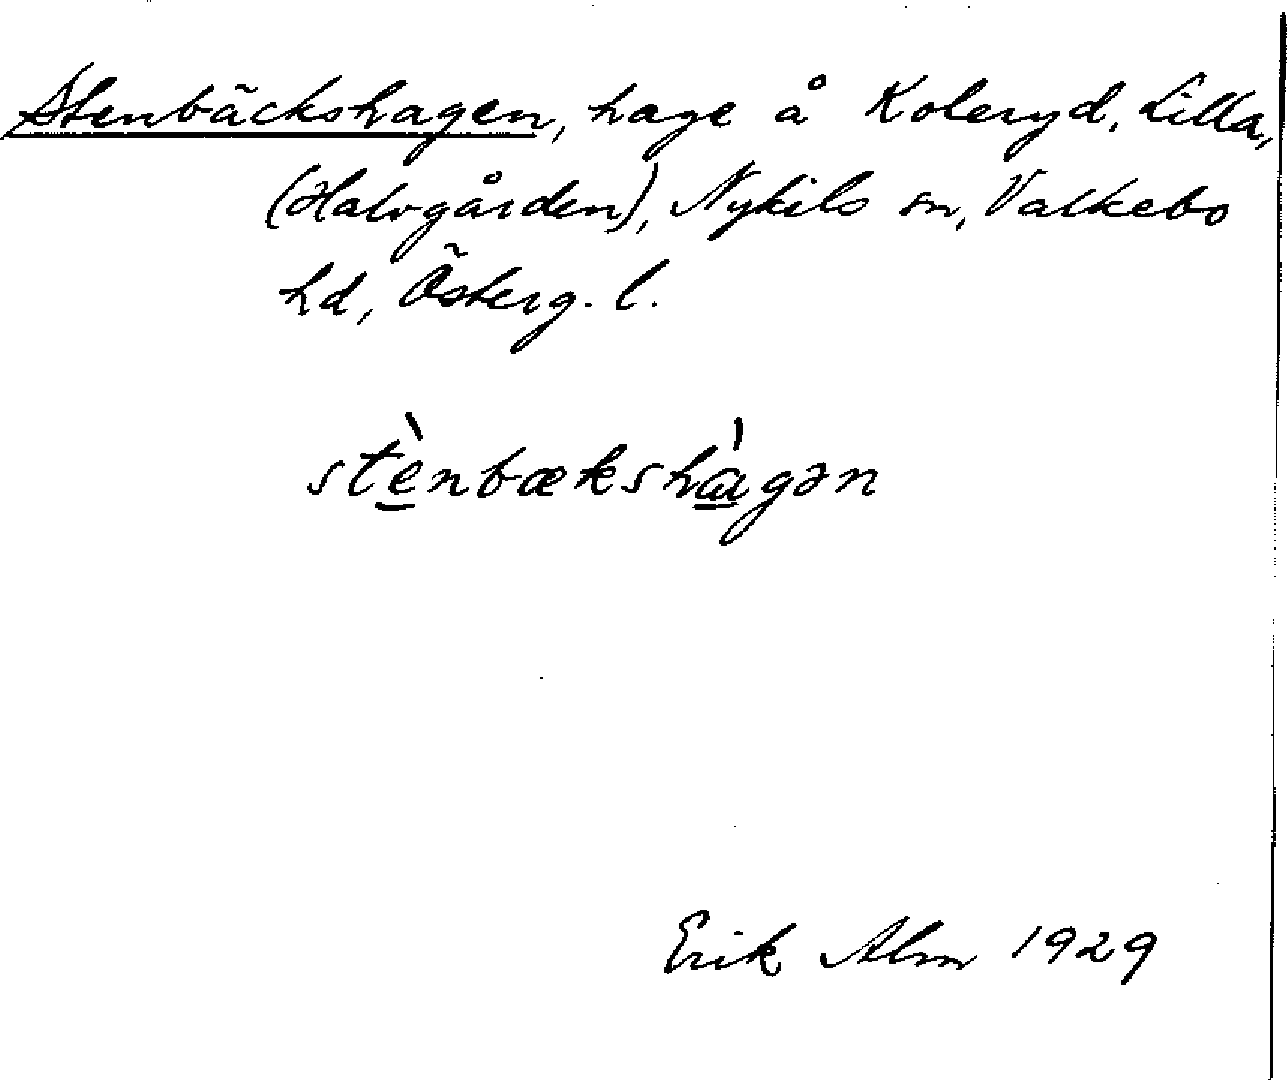 Stenbäckshagen, hage å Koleryd, Lilla,
(Halvgården), Nykils sn, Valkebo
hd, Österg. l.
stè̲nbækshà̲gən
Erik Alm 1929